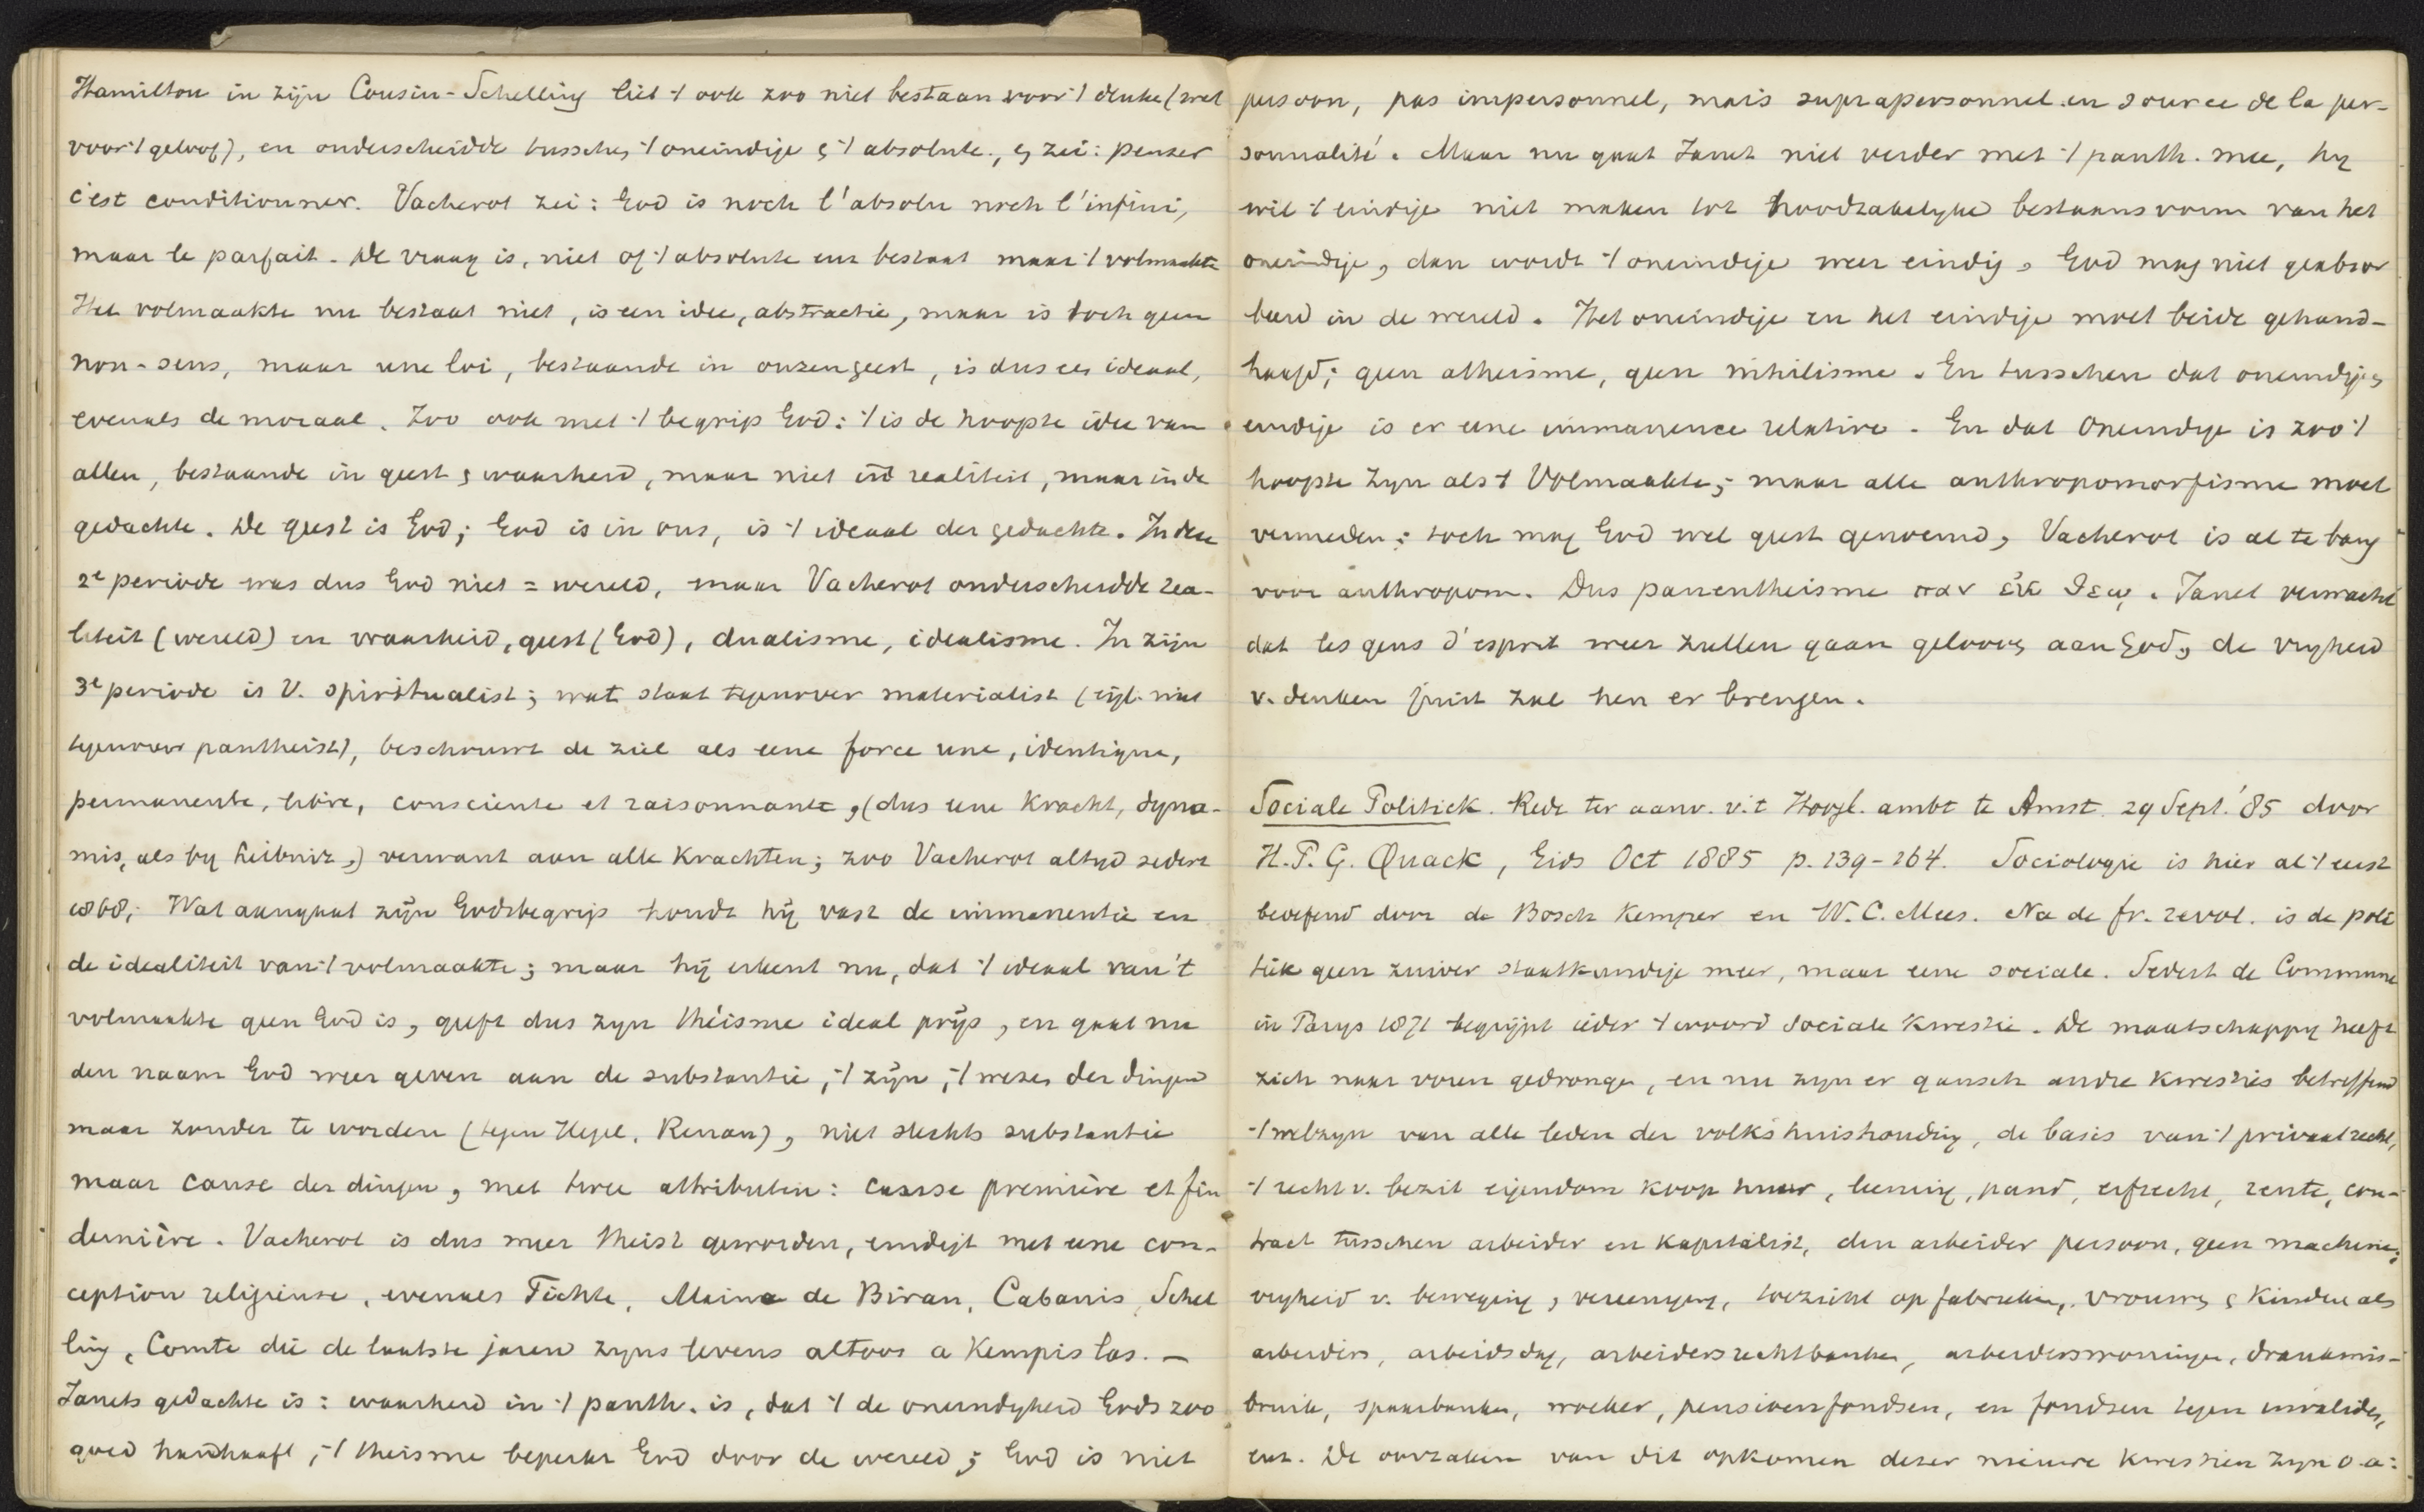 Hamilton in zijn Cousin-Schelling liet 't ook zoo niet bestaan voor 't denke (wel
voor 't geloof), en onderscheidde tusschen 't oneindige & 't absolute, & zei: penser
c'est conditionner. Vacherot zei: God is noch l'absolu noch l'infini,
maar le parfait. De vraag is, niet of 't absolute enz bestaat maar 't volmaakte
Het volmaakte nu bestaat niet, is een idee, abstractie, maar is toch geen
non-sens, maar une loi, bestaande in onzen geest, is dus een ideaal,
evenals de moraal. Zoo ook met 't begrip God: 't is de hoogste idee van
allen, bestaande in geest & waarheid, maar niet in d realiteit, maar in de
gedachte. De geest is God; God is in ons, is 't ideaal der gedachte. In deze
2e periode was dus God niet = wereld, maar Vacherot onderscheidde rea-
liteit (wereld) en waarheid, geest (God), dualisme, idealisme. In zijn
3e periode is V. spiritualist; wat staat tegenover materialist (eigl. niet
tegenover pantheist), beschouwt de ziel als eene force une, identique,
permanente, libre, consciente et raisonnante, (dus eene kracht, dyna-
mis, als by Leibniz,) verwant aan alle krachten; zoo Vacherot altyd sedert
1868; Wat aangaat zijn Godsbegrip houdt hij vast de immanentie en
de idealiteit van 't volmaakte; maar hij erkent nu, dat 't ideaal van 't
volmaakte geen God is, geeft dus zyn théisme idéal prijs, en gaat nu
den naam God weer geven aan de substantie, 't zijn, 't wezen der dingen
maar zonder te worden (tegen Hegel, Renan), niet slechts substantie
maar cause der dingen, met twee attributen: cause première et fin
dernière. Vacherot is dus meer theist geworden, eindigt met eene con-
ception religieuse, evenals Fichte, Maine de Biran, Cabanis, Schel
ling, Comte die de laatste jaren zyns levens altoos a Kempis las. —
Janets gedachte is: waarheid in 't panth. is, dat 't de oneindigheid Gods zoo
goed handhaaft, 't theisme beperkt God door de wereld; God is niet
persoon, pas impersonnel, mais suprapersonnel en source de la per-
sonnalité. Maar nu gaat Janet niet verder met 't panth. mee, hy
wil 't eindige niet maken tot noodzakelyke bestaansvorm van het
oneindige, dan wordt 't oneindige weer eindig. God mag niet geabsor
beerd in de wereld. Het oneindige en het eindige moet beide gehand-
haafd; geen atheisme, geen nihilisme. En tusschen dat oneindige &
eindige is er eene immanence relative. En dat Oneindige is zoo 't
hoogste Zyn als 't Volmaakte; maar alle anthropomorfisme moet
vermeden; toch mag God wel geest genoemd, Vacherot is al te bang
voor anthropom. Dus panentheisme παν ἐκ θεῳ. Janet verwacht
dat les gens d'esprit weer zullen gaan gelooven aan God, de vryheid
v. denken juist zal hen er brengen.
Sociale Politiek. Rede ter aanv. v. 't Hoogl. ambt te Amst. 29 Sept. '85 door
H.P.G. Quack, Gids Oct 1885 p. 239-264. Sociologie is hier al 't eerst
beoefend door de Bosch Kemper en W.C. Mees. Na de fr. revol. is de poli
tiek geen zuiver staatkundige meer, maar eene sociale. Sedert de Commune
in Parys 1871 begrijpt ieder 't woord sociale kwestie. De maatschappy heeft
zich naar voren gedrongen, en nu zyn er gansch andre kwesties betreffend
't welzyn van alle leden der volkshuishouding, de basis van 't privaatrecht,
't recht v. bezit eigendom koop huur, leening, pand, erfrecht, rente, con-
tract tusschen arbeider en kapitalist, den arbeider persoon, geen machine;
vryheid v. beweging, vereeniging, toezicht op fabrieken, vrouwen & kinderen als
arbeiders, arbeidsdag, arbeidersrechtbanken, arbeiderswoningen, drankmis-
bruik, spaarbanken, woeker, pensioenfondsen, en fondsen tegen invalides,
enz. De oorzaken van dit opkomen dezer nieuwe kwestien zyn o.a: